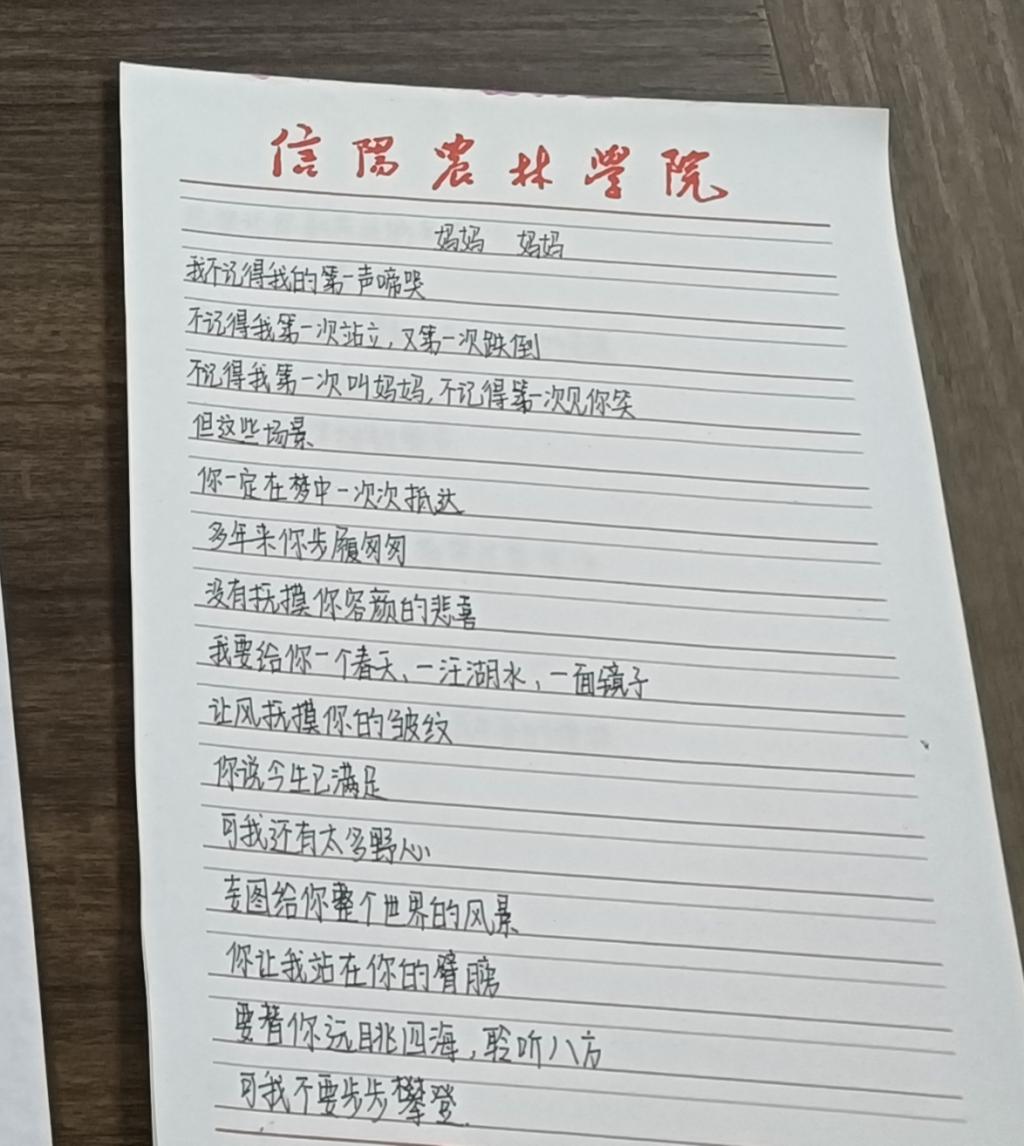 信陽農林學院
妈妈 妈妈
我不记得我的第一声啼哭
不记得我第一次站立,又第一次跌倒
不记得我第一次叫妈妈,不记得第一次见你笑
但这些场景
你一定在梦中一次次抵达
多年来你步履匆匆
没有抚摸你容颜的悲喜
我要给你一个春天、一汪湖水,一面镜子
让风抚摸你的皱纹
你说今生已满足
可我还有太多野心
妄图给你整个世界的风景
你让我站在你的臂膀
要替你远眺四海,聆听八方
可我不要步步攀登.